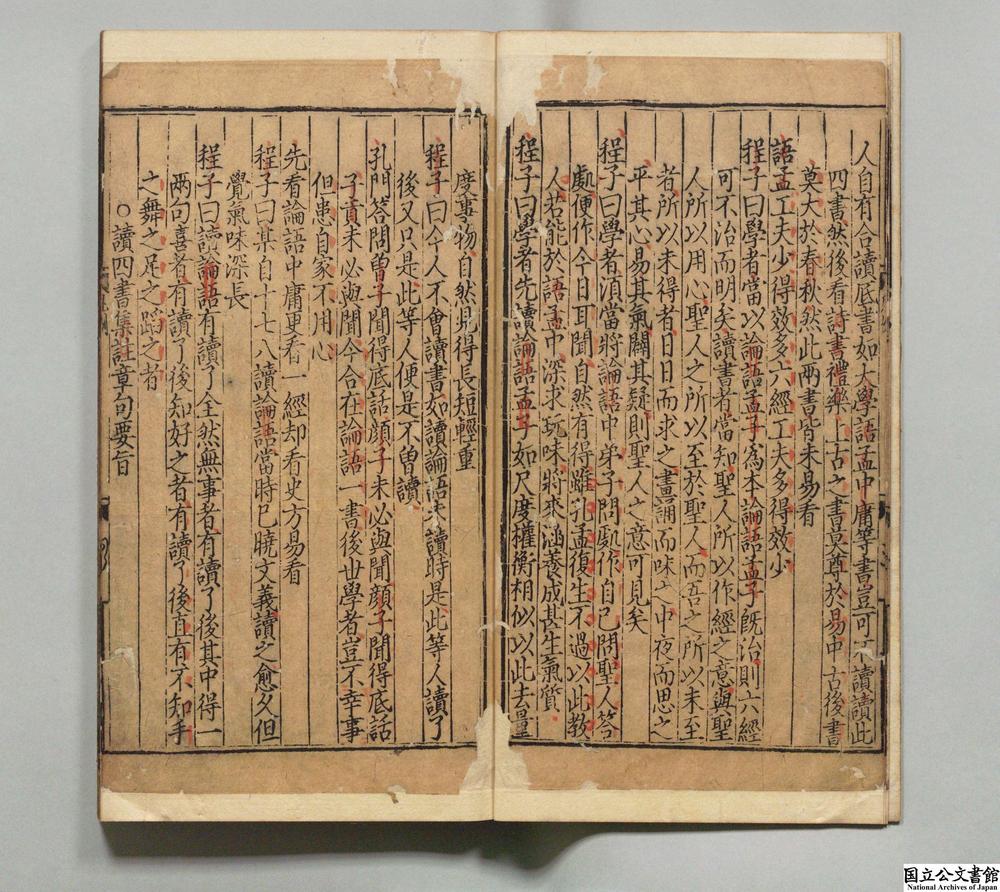 人自有合讀底書如大學語孟中庸等書豈可不讀讀此
四書然後看詩書禮樂上古之書莫尊於易中古後書
莫大於春秋然此兩書皆未易看
語孟工夫少得效多六經工夫多得效少
程子曰學者當以論語孟子為本論語孟子既治則六經
可不治而明矣讀書者當知聖人所以作經之意與聖
人所以用心聖人之所以至於聖人而吾之所以未至
者所以未得者日日而求之晝誦而味之中夜而思之
平其心易其氣闕其疑則聖人之意可見矣
程子曰學者須當將論語中弟子問處作自己問聖人答
處便作今日耳聞自然有得雖孔孟復生不過以此教
人若能於語孟中深求玩味將來涵養成甚生氣質
程子曰學者先讀論語孟子如尺度權衡相似以此去量
度事物自然見得長短輕重
程子曰今人不會讀書如讀論語未讀時是此等人讀了
後又只是此等人便是不曾讀
孔門答問曾子聞得底話顏子未必與聞顏子聞得底話
子貢未必與聞今合在論語一書後世學者豈不幸事
但患自家不用心
先看論語中庸更看一經却看史方易看
程子曰某自十七八讀論語當時已曉文義讀之愈久但
覺氣味深長
程子曰讀論語有讀了全然無事者有讀了後其中得一
兩句喜者有讀了後知好之者有讀了後直有不知手
之舞之足之蹈之者
○讀四書集註章句要旨
国立公文書館
National Archives of Japan